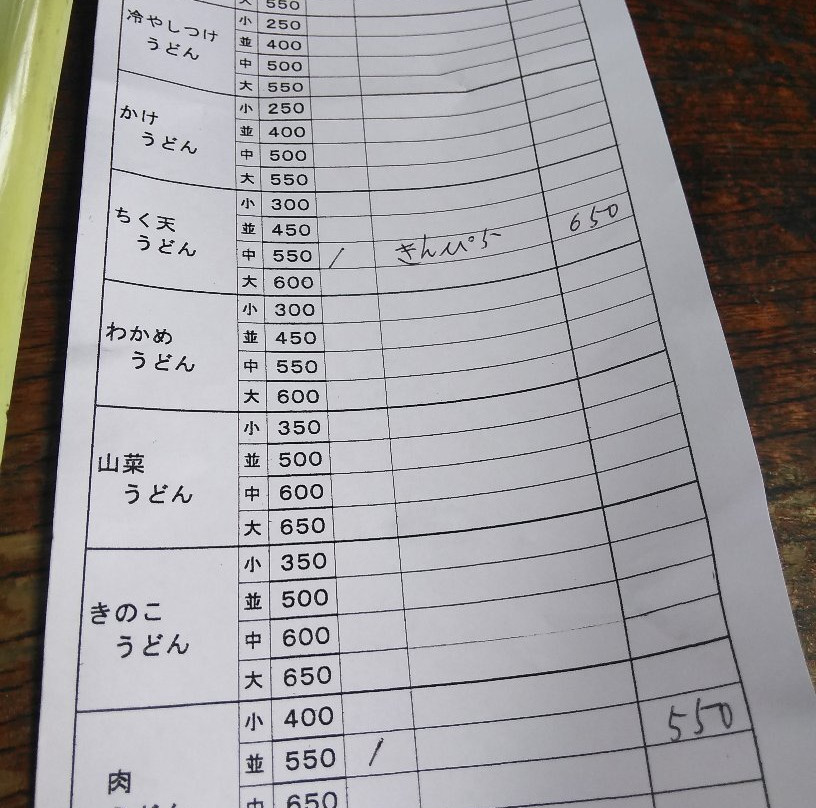 大 550
冷やしつけ 小 250
うどん 並 400
中 500
大 550
かけ 小 250
うどん 並 400
中 500
大 550
ちく天 小 300
うどん 並 450
中 550 / きんぴら 650
大 600
わかめ 小 300
うどん 並 450
中 550
大 600
山菜 小 350
うどん 並 500
中 600
大 650
きのこ 小 350
うどん 並 500
中 600
大 650
小 400
肉 並 550 / 550
うどん 中 650